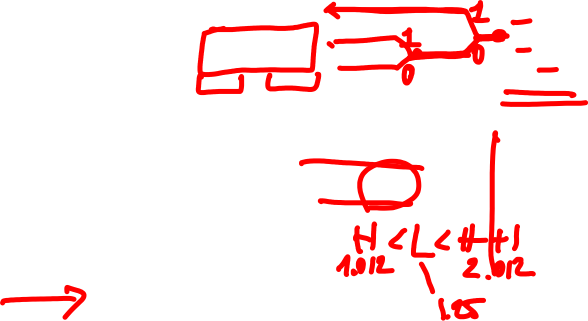 1
1
0
0
H < L < H+H
1.012 2.012
1.25